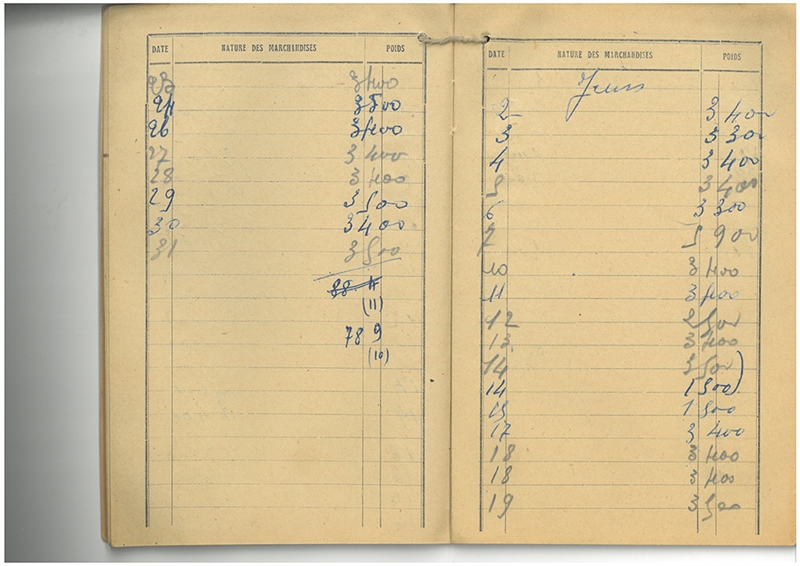 DATE NATURE DES MARCHANDISES POIDS
23 3400
24 3500
26 3400
27 3 400
28 3 400
29 3 500
30 3 400
31 3 500
88 4
(11)
78 9
(10)
DATE NATURE DES MARCHANDISES POIDS
2 3 400
3 3 300
4 3 400
5 3 400
6 3 300
7 5 900
10 3 400
11 3 400
12 2 500
13 3 400
14 3 500)
14 1 500)
15 1 500
17 3 400
18 3 400
18 3 400
19 3 500